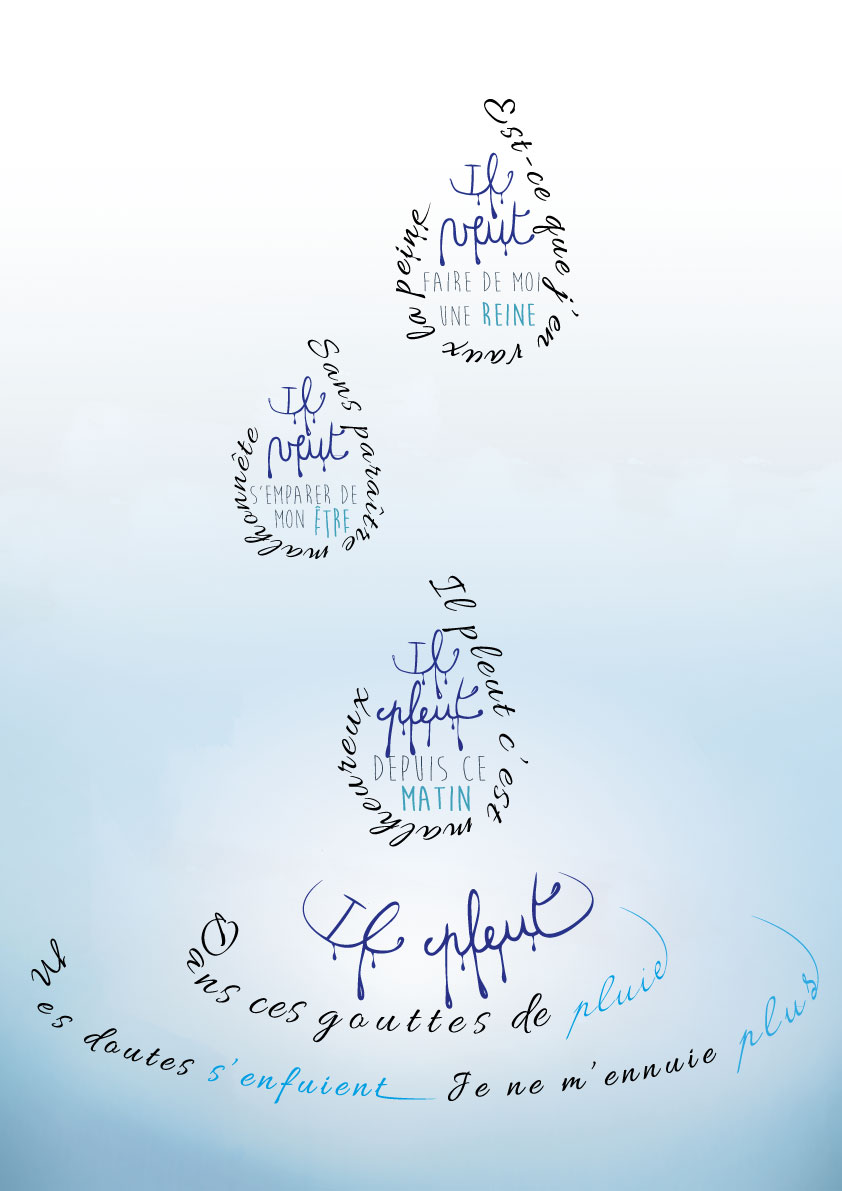 Est-ce que j'en vaux la peine
Il
veut
FAIRE DE MOI
UNE REINE
Sans paraître malhonnête
Il
veut
S'EMPARER DE
MON ÊTRE
Il pleut c'est malheureux
Il
pleut
DEPUIS CE
MATIN
Il pleut
Dans ces gouttes de pluie
Mes doutes s'enfuient Je ne m'ennuie plus